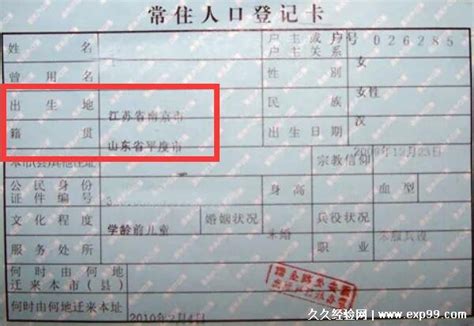 常住人口登记卡
姓名 户主或 户号 026285
户主 关系 女
曾用名 性别 女性
出生地 江苏省南京市 民族 汉
籍贯 山东省平度市 出生日期
本市(县)其他住址 宗教信仰
公民身份证件编号 身高 血型
文化程度 学龄前儿童 婚姻状况 未婚 兵役状况 未服兵役
服务处所 职业
何时由何地迁来本市(县)
何时由何地迁来本址 2010年2月4日
久久经验网 | www.exp99.com